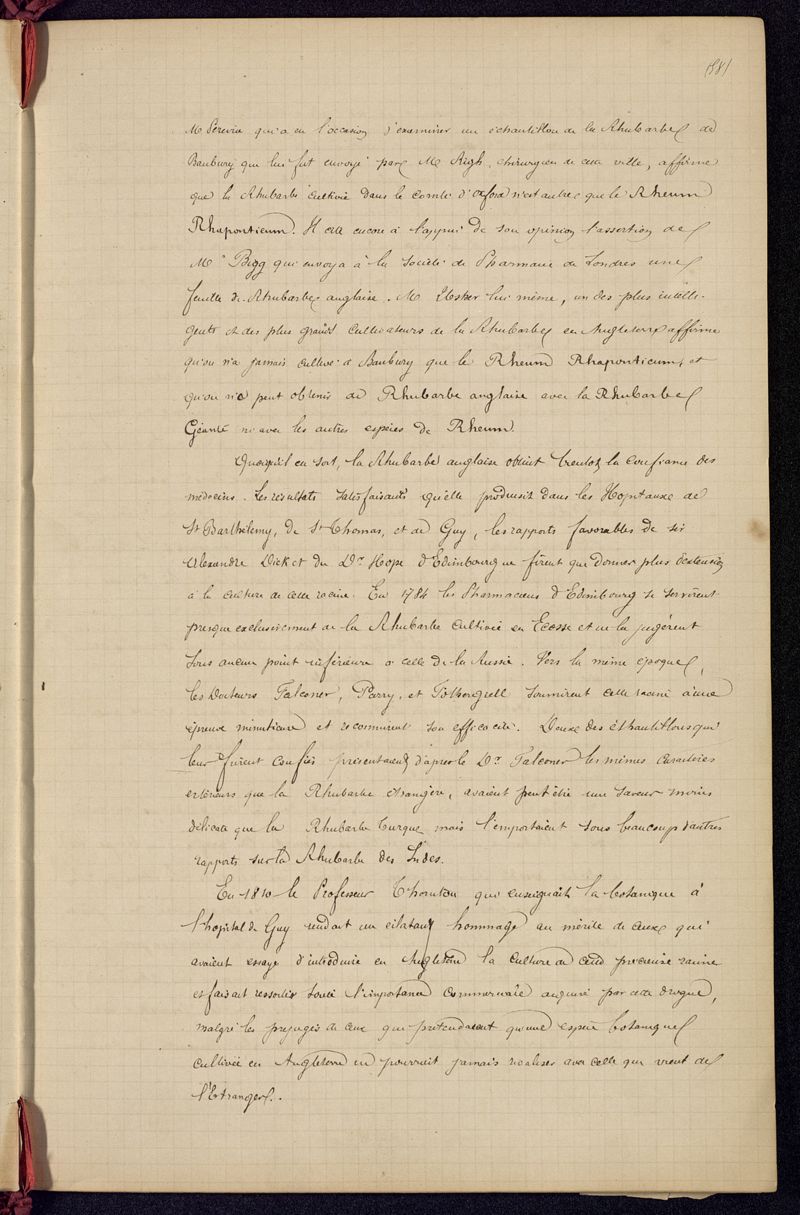 (38)
Mr Péreira qui a eu l'occasion d'examiner un échantillon de la Rhubarbe de
Banbury qui lui fut envoyé par Mr chirurgien de cette ville, affirme
que la Rhubarbe cultivée dans le comté d'oxford n'est autre que le Rheum
Rhaponticum. Il cite encore à l'appui de son opinion l'assertion de
Mr Bigg qui envoya à la Société de Pharmacie de Londres une
feuille de Rhubarbe anglaise. Mr Usher lui même, un des plus intelli-
gents et des plus grands cultivateurs de la Rhubarbe en Angleterre affirme
qu'on n'a jamais cultivé à Banbury que le Rheum Rhaponticum, et
qu'on ne peut obtenir de Rhubarbe anglaise avec la Rhubarbe
Géante ni avec les autres espèces de Rheum.
Quoiqu'il en soit, la Rhubarbe anglaise obtint bientot la confiance des
médecins. Les résultats satisfaisants qu'elle produisit dans les Hopitaux de
St Barthélemy, de St Thomas, et de Guy, les rapports favorables de sir
Alexandre Dick et du Dr Hope d'Edimbourg ne firent que donner plus d'extension
à la culture de cette racine. En 1784 les Pharmaciens d'Edimbourg se servirent
presque exclusivement de la Rhubarbe cultivée en Ecosse et ne la jugèrent
sous aucun point inférieure à celle de la Russie. Vers la même époque,
les Docteurs Falconer, Parry, et Fothergill soumirent cette racine à une
épreuve minutieuse et reconnurent son efficacité. Deux des échantillons qui
leur furent confiés présentaient d'après le Dr Falconer les mêmes caractères
extérieurs que la Rhubarbe étrangère, avaient peut être une saveur moins
délicate que la Rhubarbe turque mais l'emportaient sous beaucoup d'autres
rapports sur la Rhubarbe des Indes.
En 1810 le Professeur Thornton qui enseignait la botanique à
l'hopital de Guy rendait un éclatant hommage au mérite de ceux qui
avaient essayé d'introduire en Angleterre la culture de cette précieuse racine
et faisait ressortir toute l'importance commerciale acquise par cette drogue,
malgré les préjugés de ceux qui prétendaient qu'une espèce botanique
cultivée en Angleterre ne pourrait jamais rivaliser avec celle qui vient de
l'Etranger.